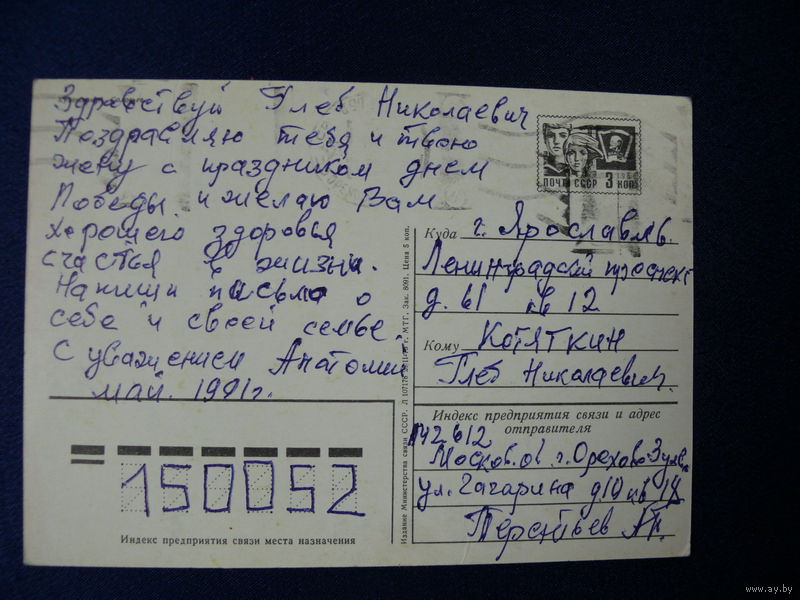 Здравствуй Глеб Николаевич
Поздравляю тебя и твою
жену с праздником днем
Победы и желаю Вам
хорошего здоровья
счастья в жизни.
Напиши письмо о
себе и своей семье
С уважением Анатолий
май. 1981г.
ПОЧТА СССР 3 КОП
Куда г. Ярославль.
Ленинградский проспект
д. 61 кв 12
Кому Котяткин
Глеб Николаевич.
Индекс предприятия связи и адрес
отправителя
142612
Москов. г. Орехово Зуево
ул. Гагарина д10 кв
Терентьев
150052
Индекс предприятия связи места назначения
Издание Министерства связи СССР. МТГ. Зак. 8091. Цена 5 коп.
www.ay.by